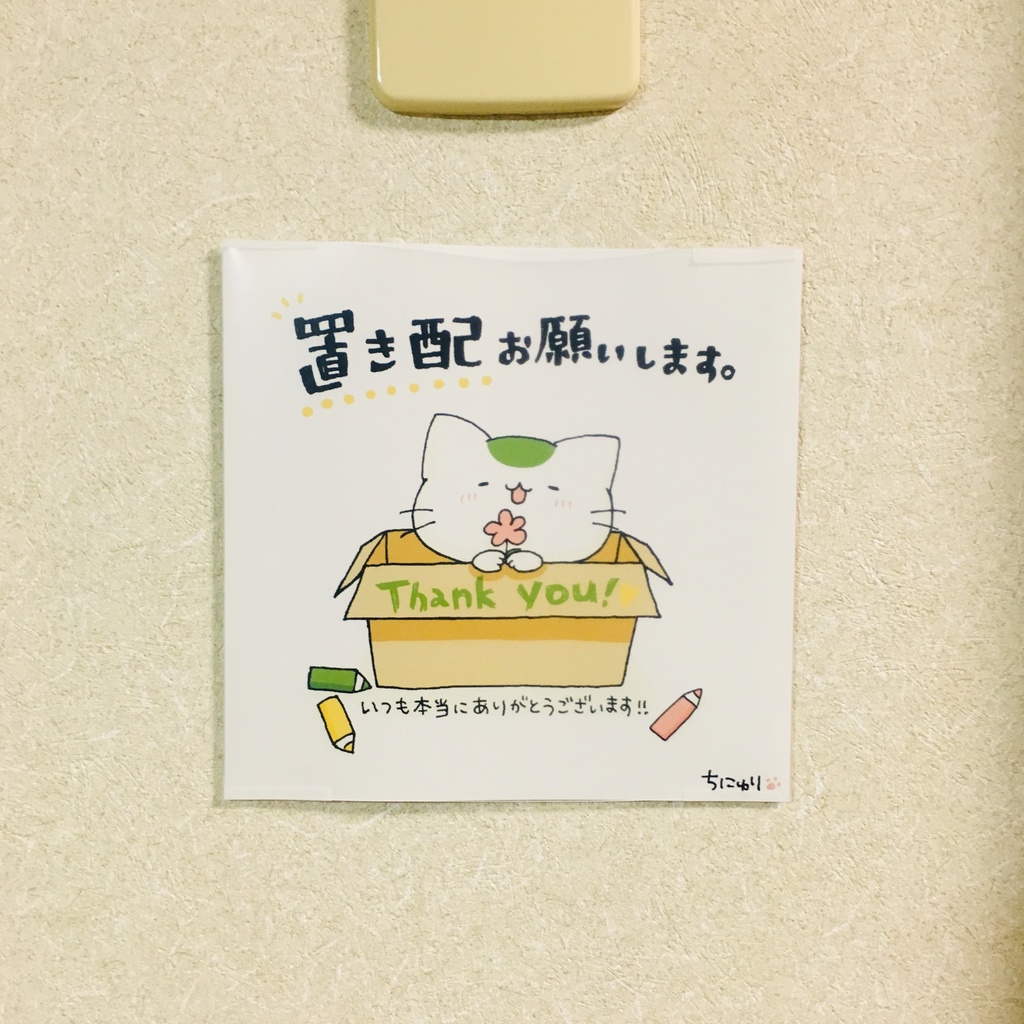 置き配お願いします。
Thank you!
いつも本当にありがとうございます!!
ちにゅり